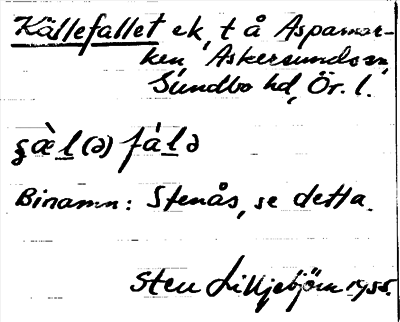 Källefallet ek, t å Aspamar-
ken, Askersunds sn,
Sundbo hd, Ör. l.
ʂæ̀l(ə) fálə
Binamn: Stenås, se detta.
Sten Lilljebjörn 1955.